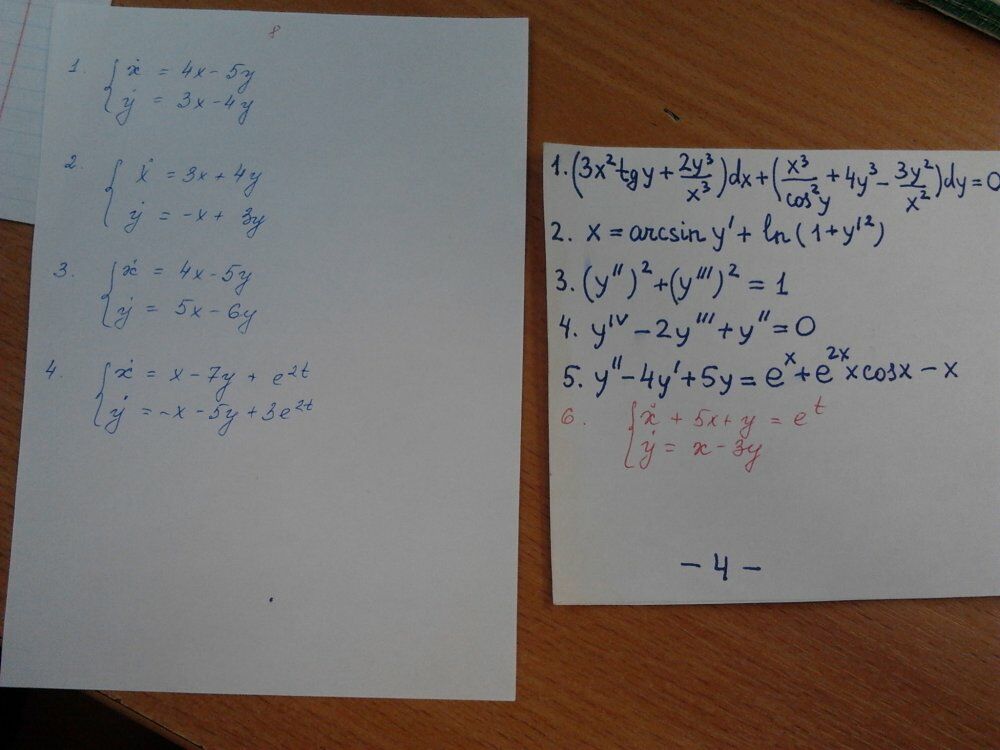 8
1. { ẋ = 4x - 5y
ẏ = 3x - 4y
2. { ẋ = 3x + 4y
ẏ = -x + 3y
3. { ẋ = 4x - 5y
ẏ = 5x - 6y
4. { ẋ = x - 7y + e^{2t}
ẏ = -x - 5y + 3e^{2t}
1. (3x² tg y + 2y³/x³)dx + (x³/cos²y + 4y³ - 3y²/x²)dy = 0
2. x = arcsin y' + ln(1 + y'²)
3. (y'')² + (y''')² = 1
4. y^{IV} - 2y''' + y'' = 0
5. y'' - 4y' + 5y = e^x + e^{2x} x cosx - x
6. { ẋ + 5x + y = e^t
ẏ = x - 3y
- 4 -